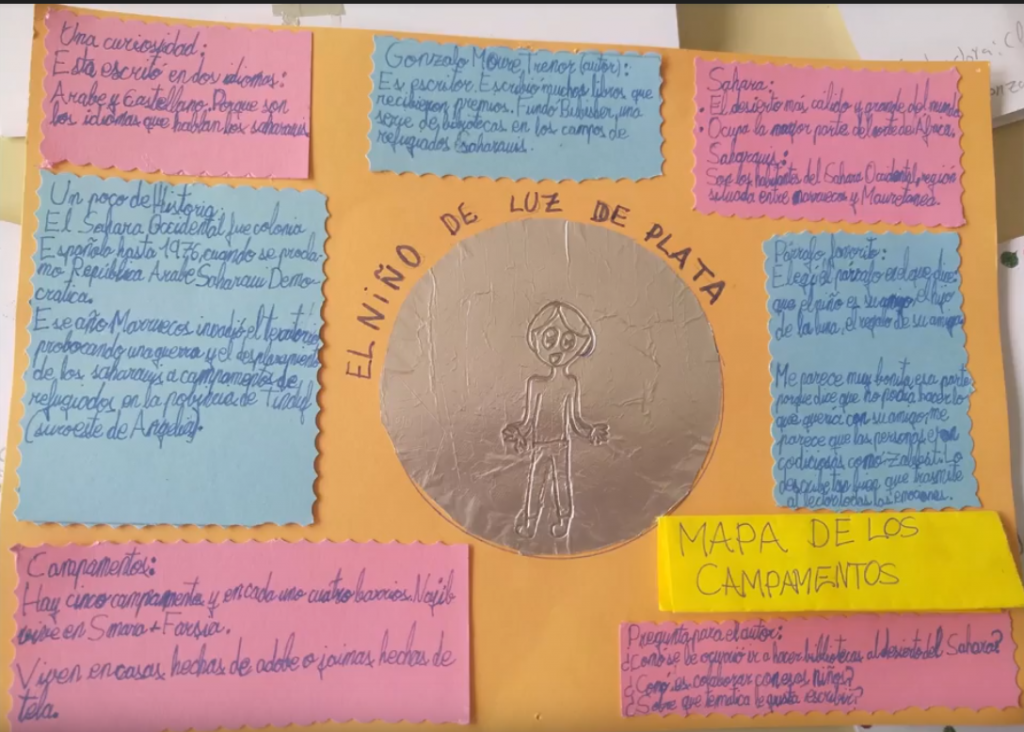 Una curiosidad:
Está escrito en dos idiomas:
Arabe y Castellano. Porque son
los idiomas que hablan los saharauis
Gonzalo Moure Trenor (autor):
Es escritor. Escribió muchos libros que
recibieron premios. Fundo Bubisher, una
serie de bibliotecas en los campos de
refugiados saharauis.
Sahara:
• El desierto más calido y grande del mundo
• Ocupa la mayor parte del norte de África.
Saharauis:
Son los habitantes del Sahara Occidental, región
situada entre marruecos y Mauretanea.
Un poco de Historia:
El Sahara Occidental fue colonia
Española hasta 1976, cuando se procla-
mo República Arabe Saharaui Demo-
cratica.
Ese año Marruecos invadió el territorio,
probocando una guerra y el desplazamiento
de los saharauis a campamentos de
refugiados en la
(suroeste de Argelia).
EL NIÑO DE LUZ DE PLATA
Párrafo favorito:
Elegi el párrafo en el que dice
que el niño es su amigo, el hijo
de la luna, el regalo de su amigo
Me parece muy bonita esa parte
porque dice que no podía hacer lo
que quería con su amigo, me
parece que las personas
codiciosas como Lo
describe tan bien que trasmite
al lector todas las emociones.
MAPA DE LOS
CAMPAMENTOS
Campamentos:
Hay cinco campamentos y en cada uno cuatro barrios. Nayib
vive en Smara + Farsia.
Viven en casas hechas de adobe o jaimas hechas de
tela.
Pregunta para el autor:
¿Comó se le ocurrió ir a hacer bibliotecas al desierto del Sahara?
¿Comó es colaborar con esos niños?
¿Sobre que tematica le gusta escribir?